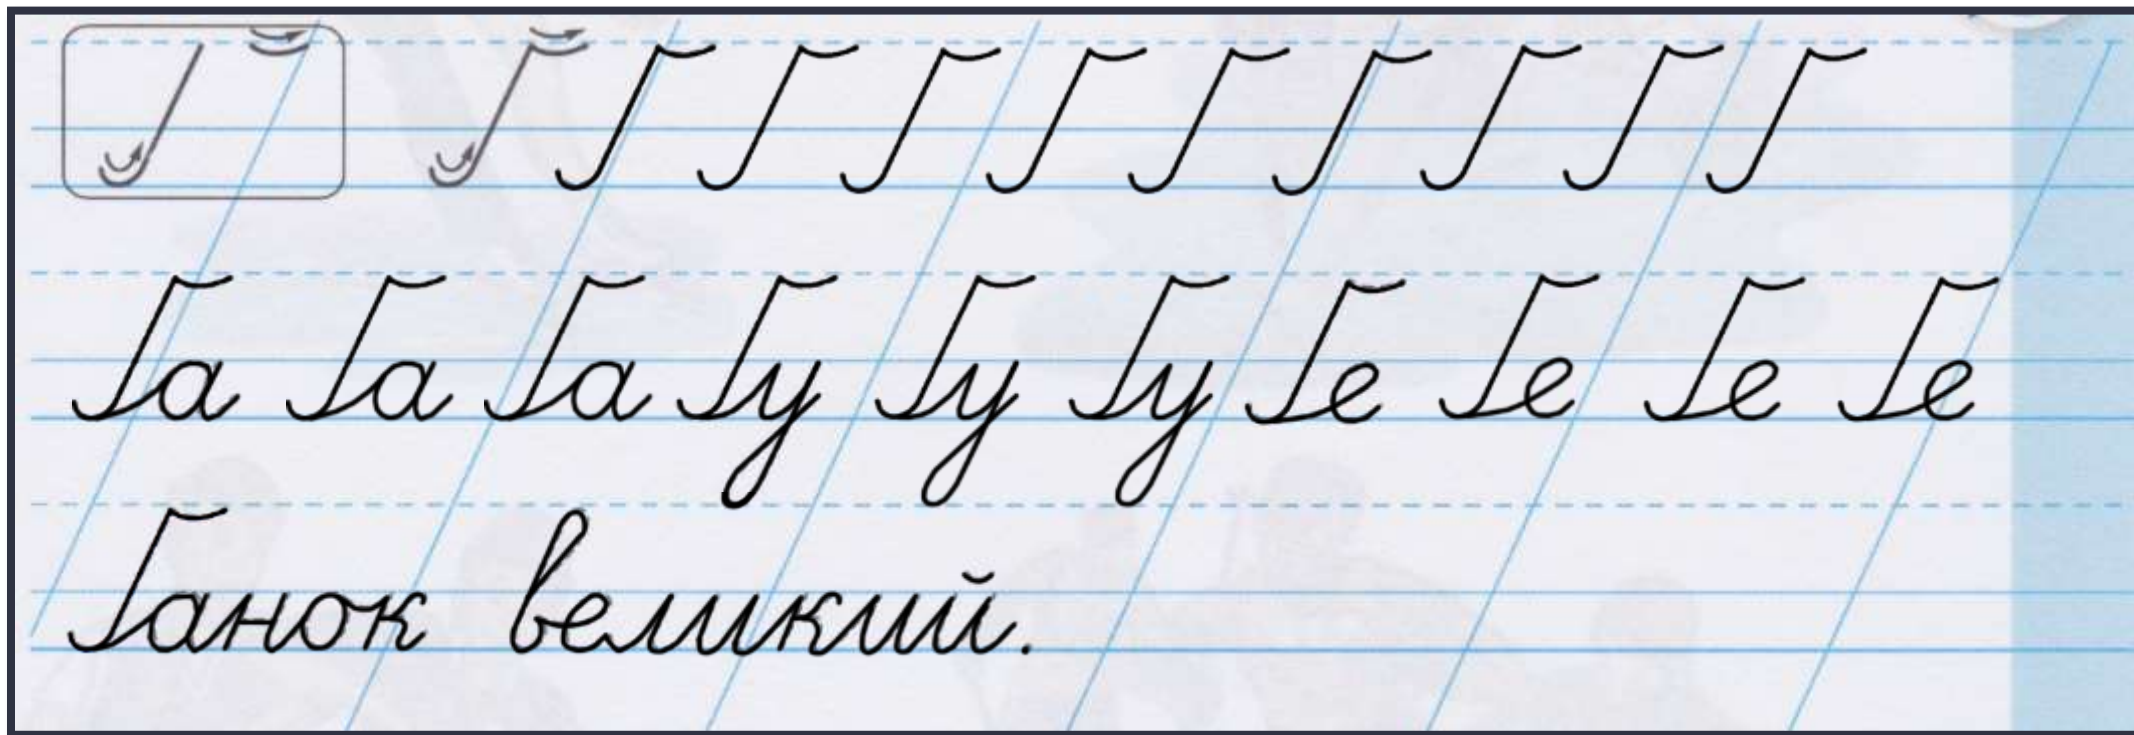 Г Г Г Г Г Г Г Г Г Г
Га Га Га Гу Гу Гу Ге Ге Ге Ге
Ганок великий.